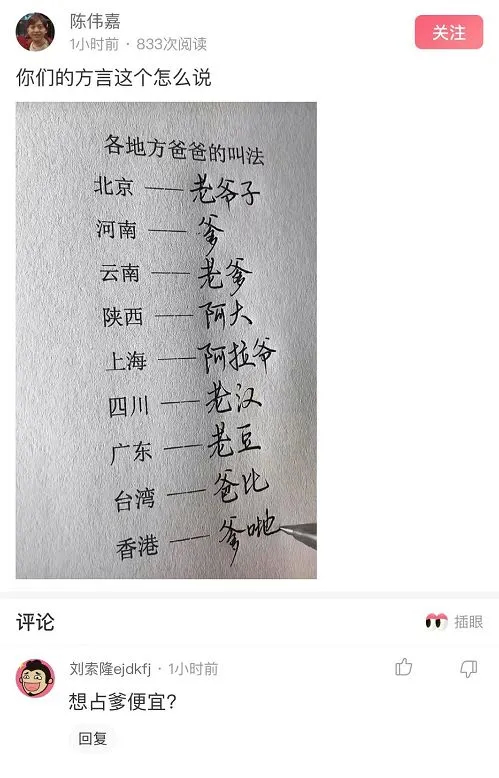 陈伟嘉
1小时前 · 833次阅读
关注
你们的方言这个怎么说
各地方爸爸的叫法
北京 —— 老爷子
河南 —— 爹
云南 —— 老爹
陕西 —— 阿大
上海 —— 阿拉爷
四川 —— 老汉
广东 —— 老豆
台湾 —— 爸比
香港 —— 爹哋
评论
插眼
刘索隆ejdkfj · 1小时前
想占爹便宜?
回复